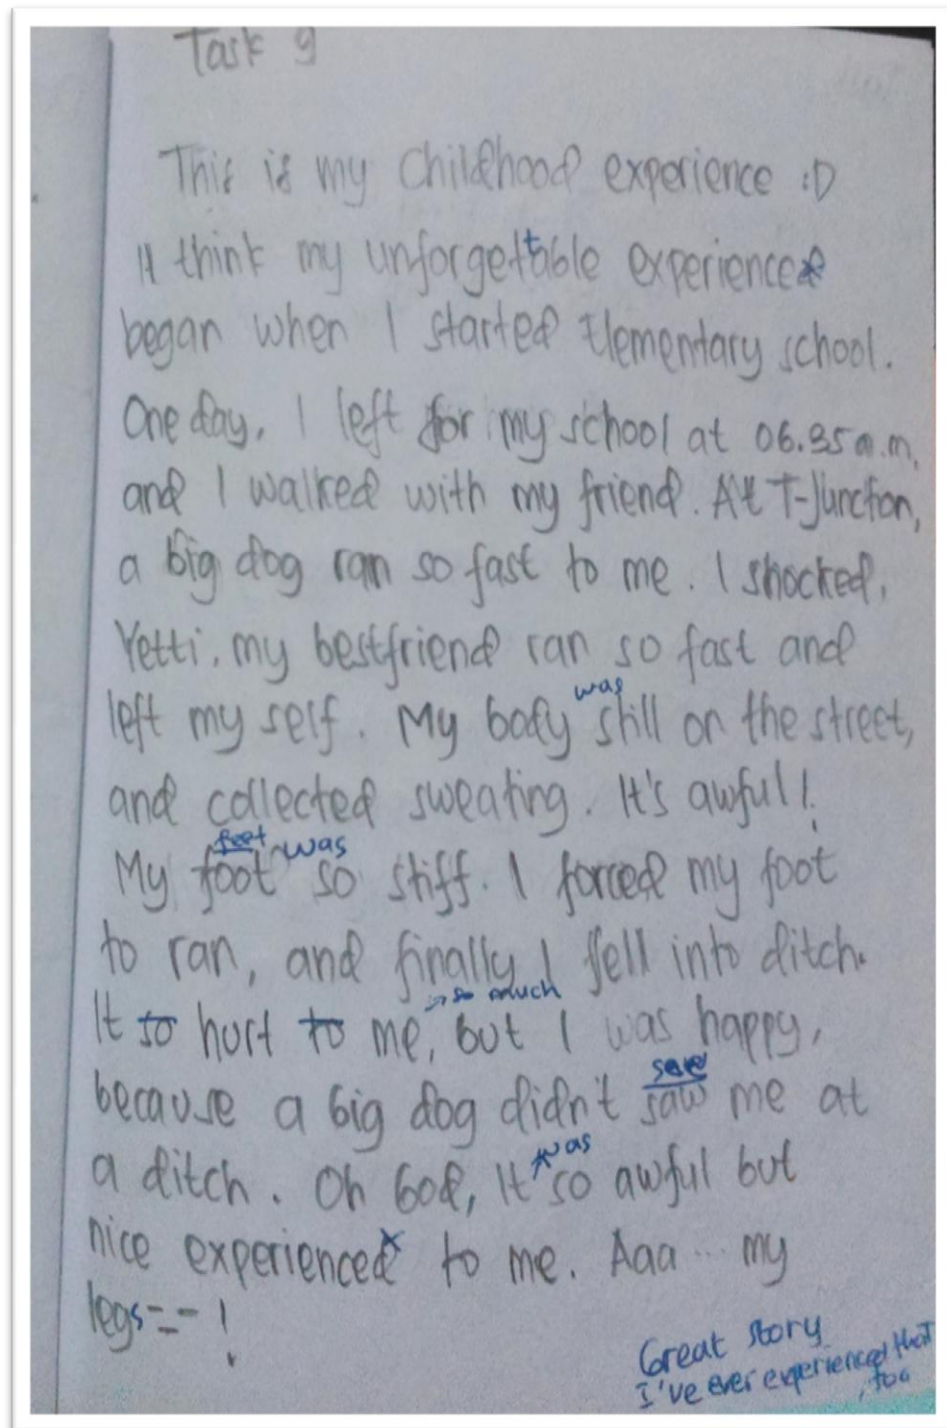 Task 9
This is my Childhood experience :D
I think my unforgettable experienced
began when I started Elementary school.
One day, I left for my school at 06.35 a.m,
and I walked with my friend. At T-Junction,
a big dog ran so fast to me. I shocked,
Yetti, my bestfriend ran so fast and
was
left my self. My body still on the street,
and collected sweating. It's awful!
feet was
My foot so stiff. I forced my foot
to ran, and finally I fell into ditch.
so much
It so hurt to me, but I was happy,
see
because a big dog didn't saw me at
was
a ditch. Oh God, It so awful but
nice experienced to me. Aaa... my
legs=_= !
Great story
I've ever experienced that
, too